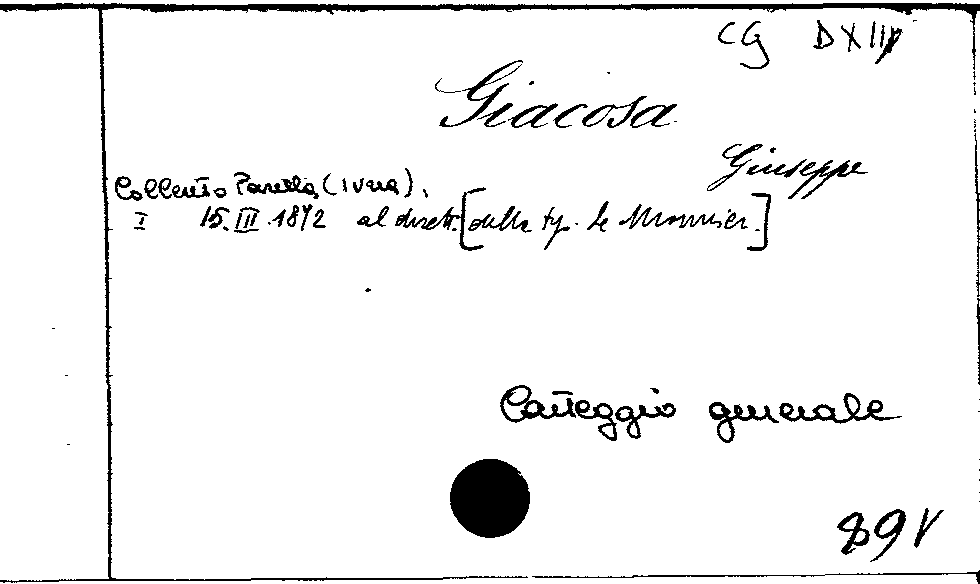 CG D XIII
Giacosa
Giuseppe
Colleretto Parella (Ivrea).
I 15.III.1872 al dirett. [della tip. Le Monnier.]
Carteggio generale
89 V